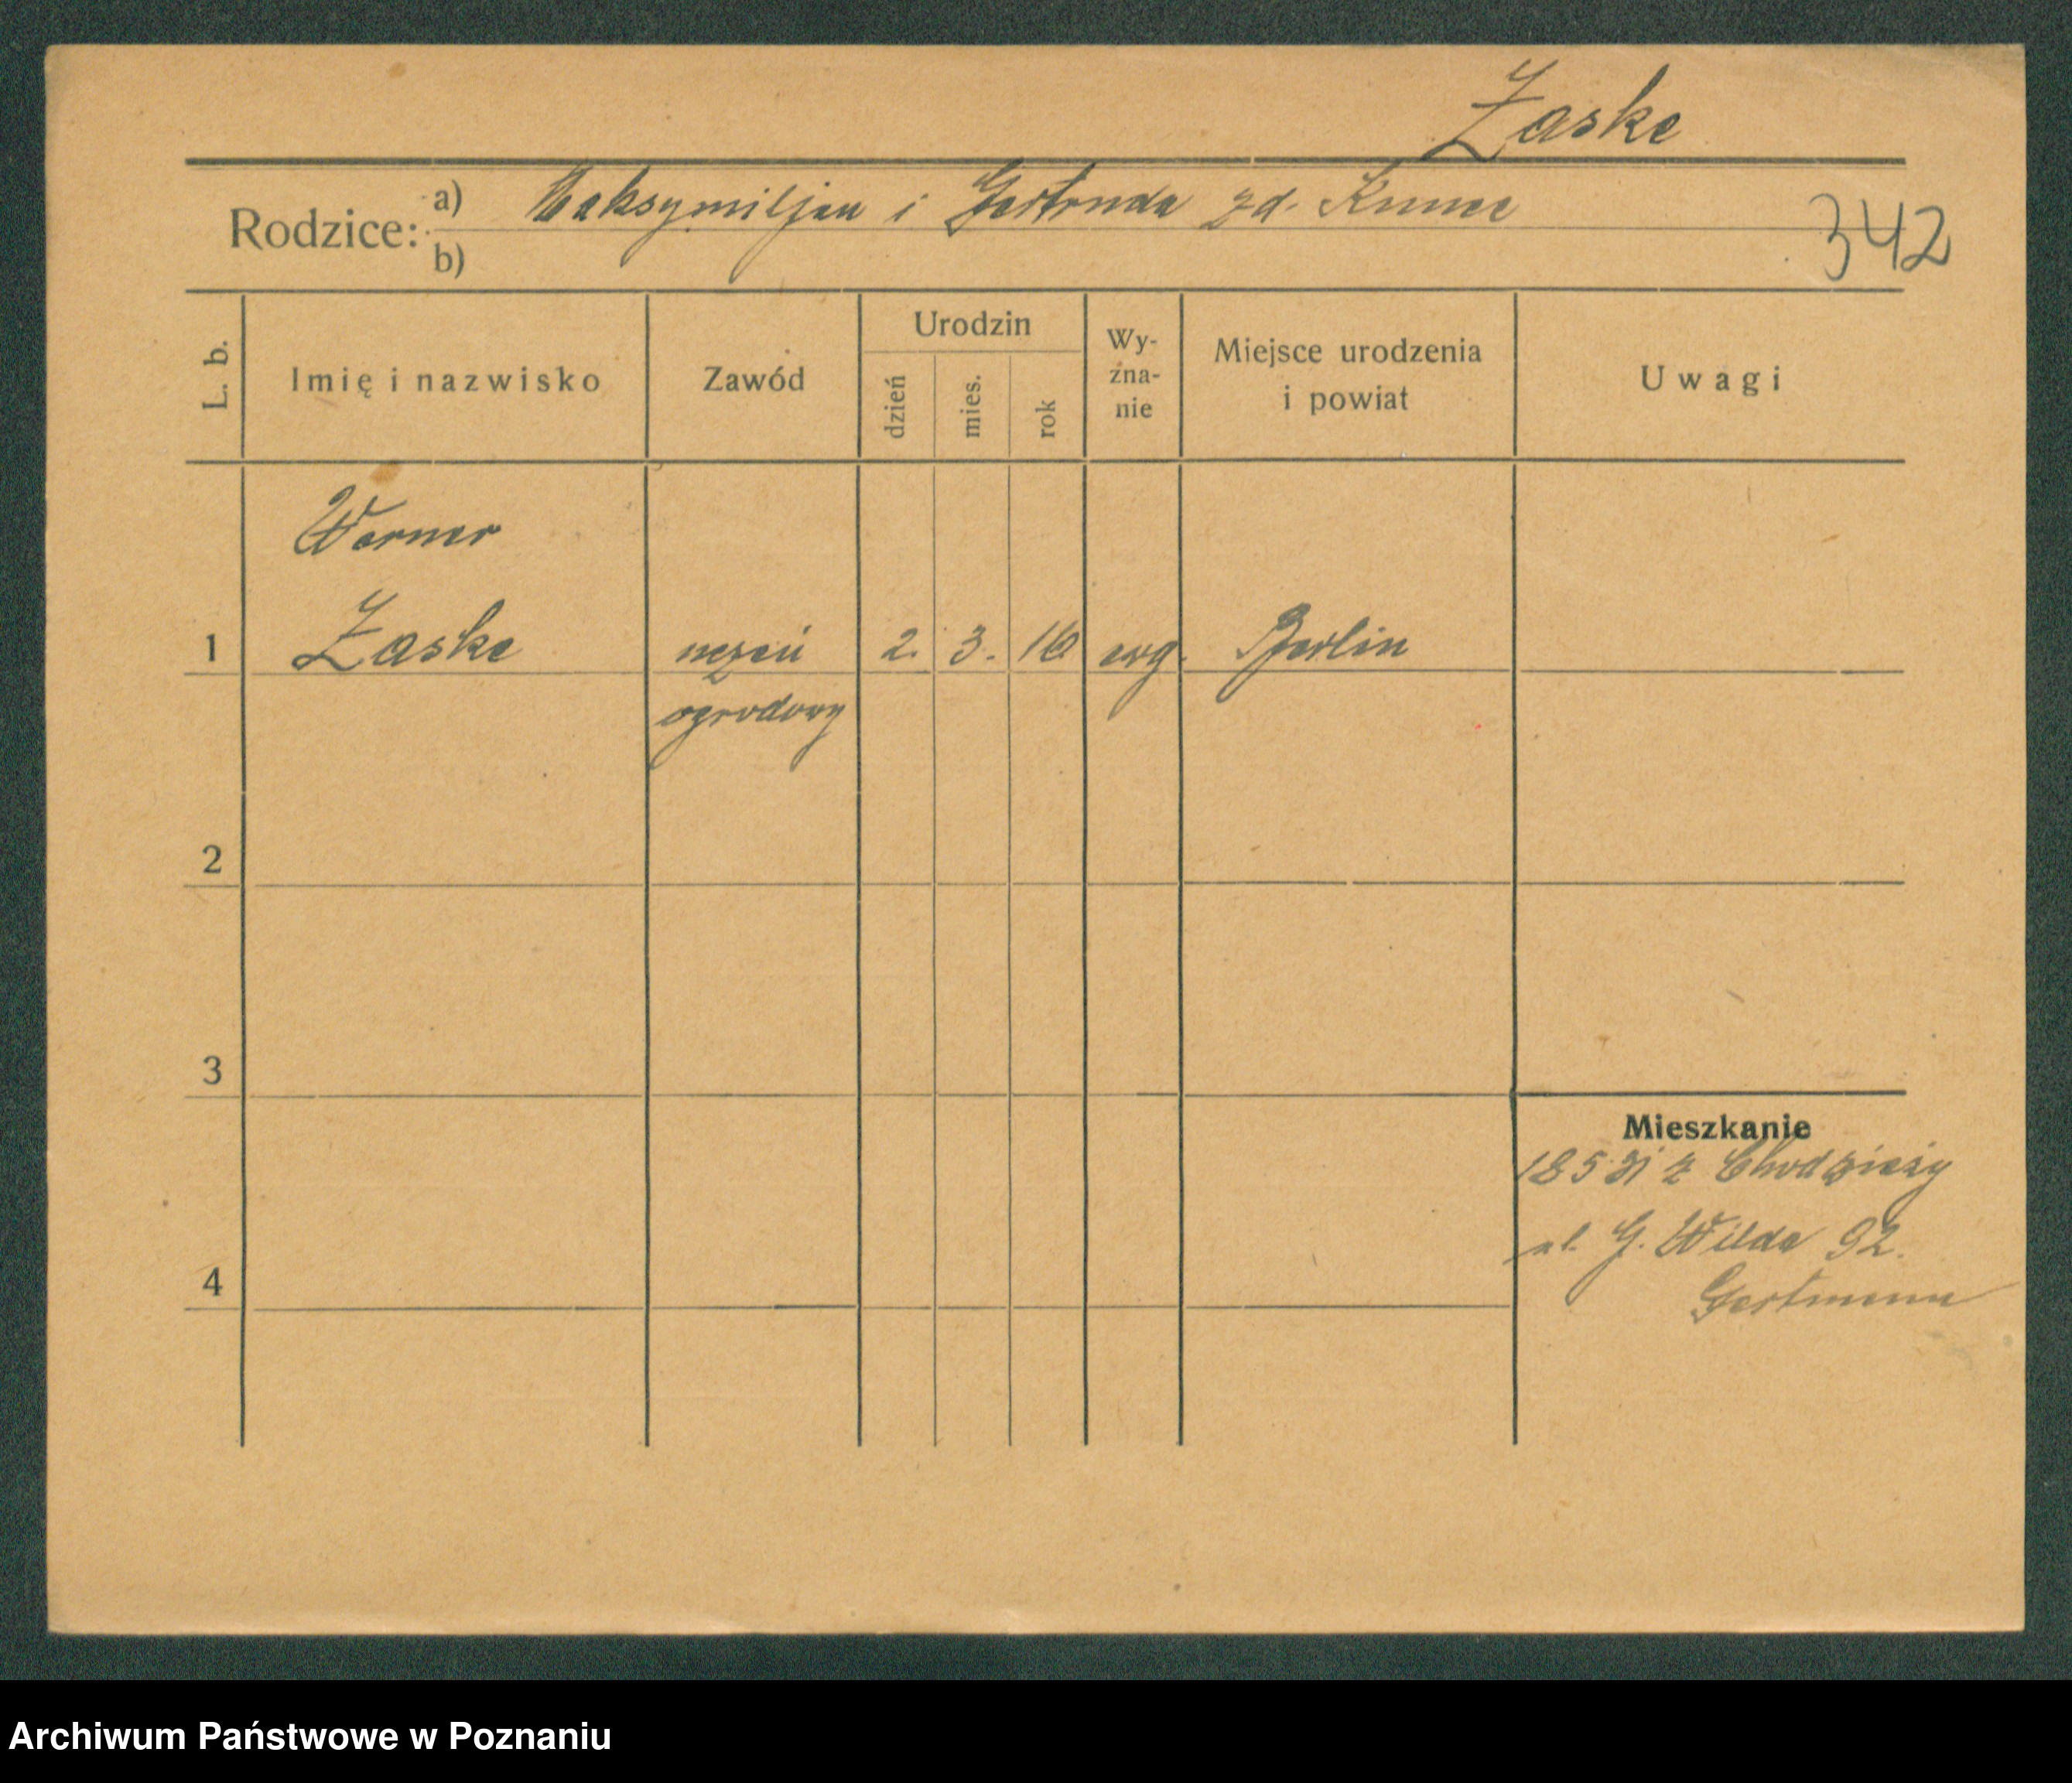 Zaske
Rodzice: a) Maksymiljan i Gertruda zd.
b)
342
L. b.
Imię i nazwisko
Zawód
Urodzin
dzień
mies.
rok
Wy-
zna-
nie
Miejsce urodzenia
i powiat
Uwagi
Werner
1 Zaske uczeń 2. 3. 16 ewg. Berlin
ogrodowy
2
3
Mieszkanie
18 5 31 z Chodzieży
ul. G. Wilda 92.
4
Archiwum Państwowe w Poznaniu